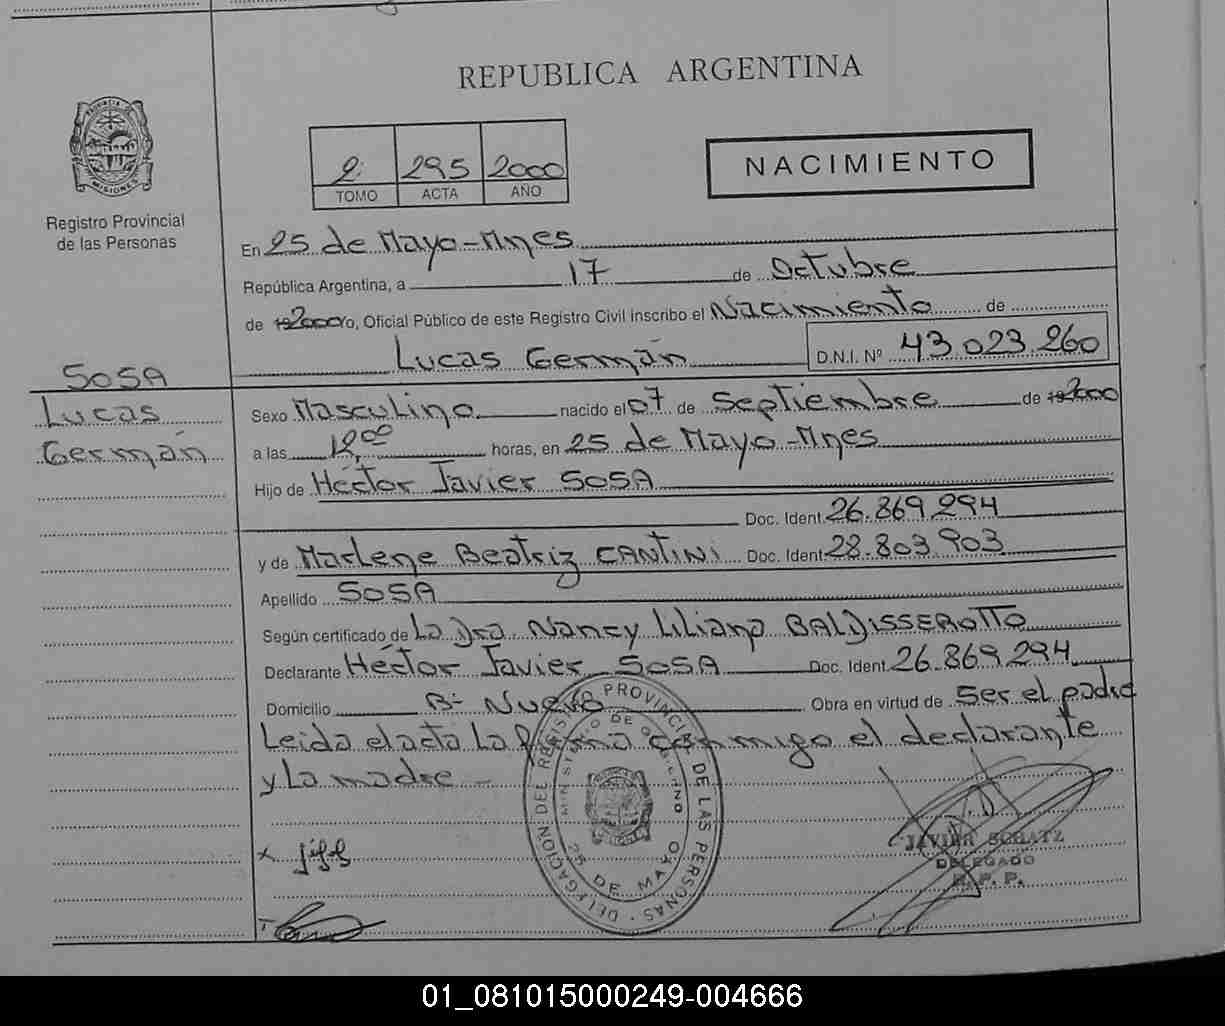 REPUBLICA ARGENTINA
PROVINCIA DE MISIONES
Registro Provincial
de las Personas
2º 295 2000
TOMO ACTA AÑO
NACIMIENTO
En 25 de Mayo-Mnes
República Argentina, a 17 de Octubre
de 2000 yo, Oficial Público de este Registro Civil inscribo el Nacimiento de
Lucas Germán D.N.I. Nº 43.023.260
SOSA
Lucas
Germán
Sexo Masculino nacido el 07 de Septiembre de 2000
a las 12,00 horas, en 25 de Mayo-Mnes
Hijo de Héctor Javier SOSA
Doc. Ident. 26.869.294
y de Marlene Beatriz CANTINI Doc. Ident. 28.803.903
Apellido SOSA
Según certificado de La Dra. Nancy Liliana BALDISSEROTTO
Declarante Héctor Javier SOSA Doc. Ident. 26.869.294
Domicilio Bº Nuevo Obra en virtud de Ser el padre
Leida el acta La firma conmigo el declarante
y La madre
DELEGACION DEL REGISTRO PROVINCIAL DE LAS PERSONAS
MINISTERIO DE GOBIERNO
25 DE MAYO
JAVIER SCHATZ
DELEGADO
R. P. P.
01_081015000249-004666